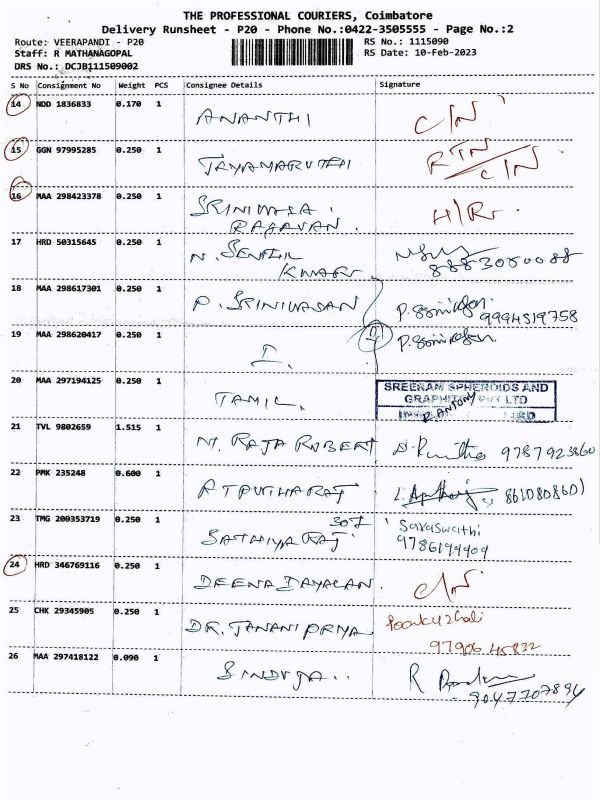 THE PROFESSIONAL COURIERS, Coimbatore
Delivery Runsheet - P20 - Phone No.:0422-3505555 - Page No.:2
Route: VEERAPANDI - P20 RS No.: 1115090
Staff: R MATHANAGOPAL RS Date: 10-Feb-2023
DRS No.: DCJB111509002
S No Consignment No Weight PCS Consignee Details Signature
14 NDD 1836833 0.170 1 ANANTHI C/N
15 GGN 97995285 0.250 1 JAYAMARUTHI RTN C/N
16 MAA 298423378 0.250 1 SRINIVASA RAGAVAN. H/R.
17 HRD 50315645 0.250 1 N. SENTIL KUMAR 8883050088
18 MAA 298617301 0.250 1 P. SRINIVASAN 9994519758
19 MAA 298620417 0.250 1 I.
20 MAA 297194125 0.250 1 TAMIL. SREERAM SPHEROIDS AND
GRAPHITE PVT LTD
R. ANTONY
21 TVL 9802659 1.515 1 M. RAJA ROBERT 9787923860
22 PMK 235248 0.600 1 861080860)
23 TMG 200353719 0.250 1 SATHIYARAJ 307 Saraswathi
9786199909
24 HRD 346769116 0.250 1 DEENA DAYALAN. C/N
25 CHK 29345905 0.250 1 DR. JANANI PRIYA
97906 45832
26 MAA 297418122 0.090 1 SINDUJA.. R
9047707894